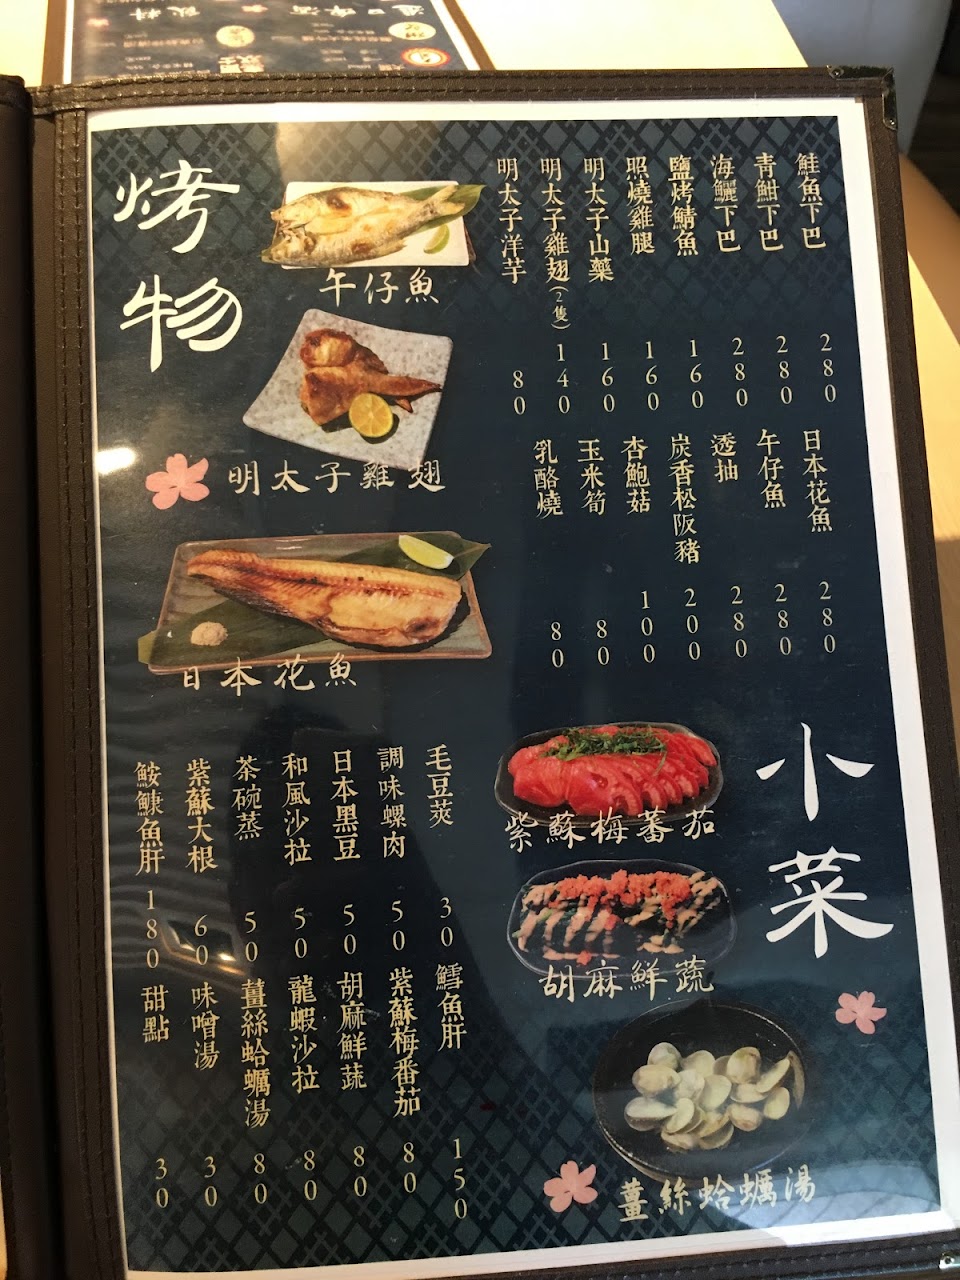 烤物
鮭魚下巴 280
青魽下巴 280
海鱺下巴 280
鹽烤鯖魚 160
照燒雞腿 160
明太子山藥 160
明太子雞翅(2隻) 140
明太子洋芋 80
日本花魚 280
午仔魚 280
透抽 280
炭香松阪豬 200
杏鮑菇 100
玉米筍 80
乳酪燒 80
午仔魚
明太子雞翅
日本花魚
小菜
毛豆莢 30
調味螺肉 50
日本黑豆 50
和風沙拉 50
茶碗蒸 50
紫蘇大根 60
鮟鱇魚肝 180
鱈魚肝 150
紫蘇梅番茄 80
胡麻鮮蔬 80
龍蝦沙拉 80
薑絲蛤蠣湯 80
味噌湯 30
甜點 30
紫蘇梅蕃茄
胡麻鮮蔬
薑絲蛤蠣湯